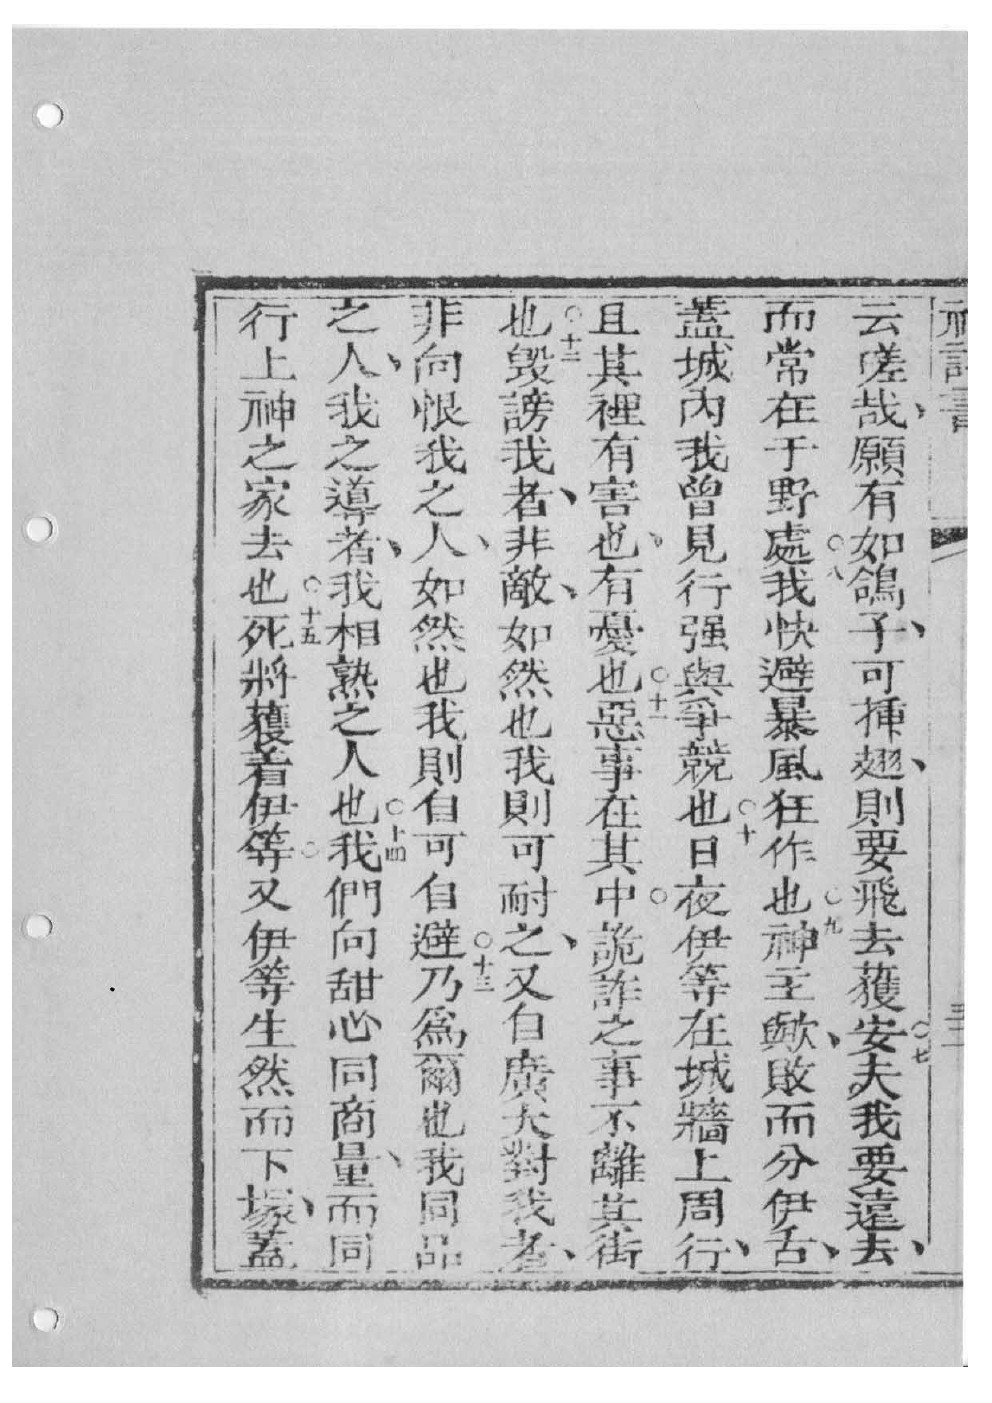 神詩書
云嗟哉、願有如鴿子、可揷翅、則要飛去蒦安○七夫我要遠去、
而常在于野處○八我快避暴風狂作也○九神主歟、敗而分伊舌、
蓋城內我曾見行强與爭競也○十日夜伊等在城牆上周行、
且其裡有害也、有憂也○十一惡事在其中○詭詐之事不離其街
也○十二毀謗我者、非敵、如然也我則可耐之、又自廣大對我者、
非向恨我之人、如然也我則自可自避○十三乃爲爾也我同品
之人、我之導者、我相熟之人也○十四我們向甜心同商量、而同
行上神之家去也○十五死將蒦着伊等○又伊等生然而下塚、蓋